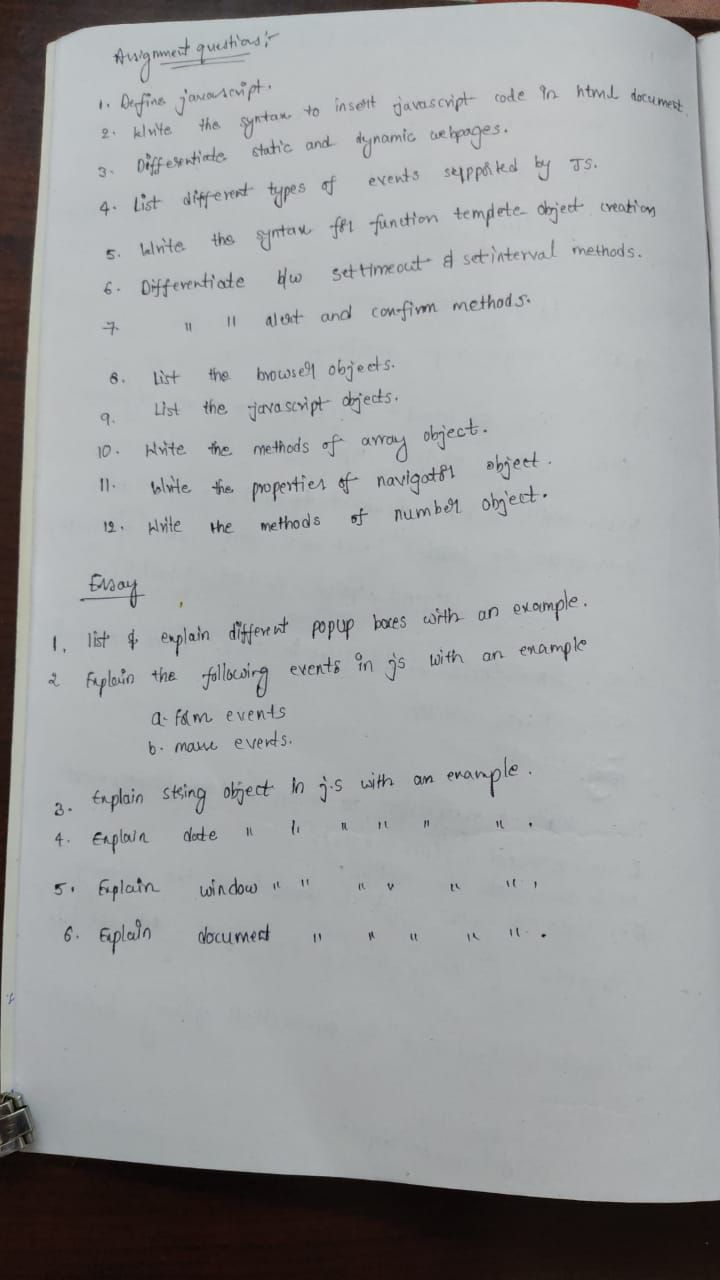 Assignment questions:-
1. Define javascript.
2. Write the syntax to insert javascript code in html document.
3. Differentiate static and dynamic webpages.
4. List different types of events supported by JS.
5. Write the syntax for function templete object creation
6. Differentiate b/w settimeout & setinterval methods.
7. " " alert and confirm methods.
8. List the browser objects.
9. List the javascript objects.
10. Write the methods of array object.
11. Write the properties of navigator object.
12. Write the methods of number object.
Essay
1. list & explain different popup boxes with an example.
2 Explain the following events in js with an example
a. form events
b. mouse events.
3. Explain string object in j.s with an example.
4. Explain date " " " " " " .
5. Explain window " " " " " " ,
6. Explain document " " " " " .